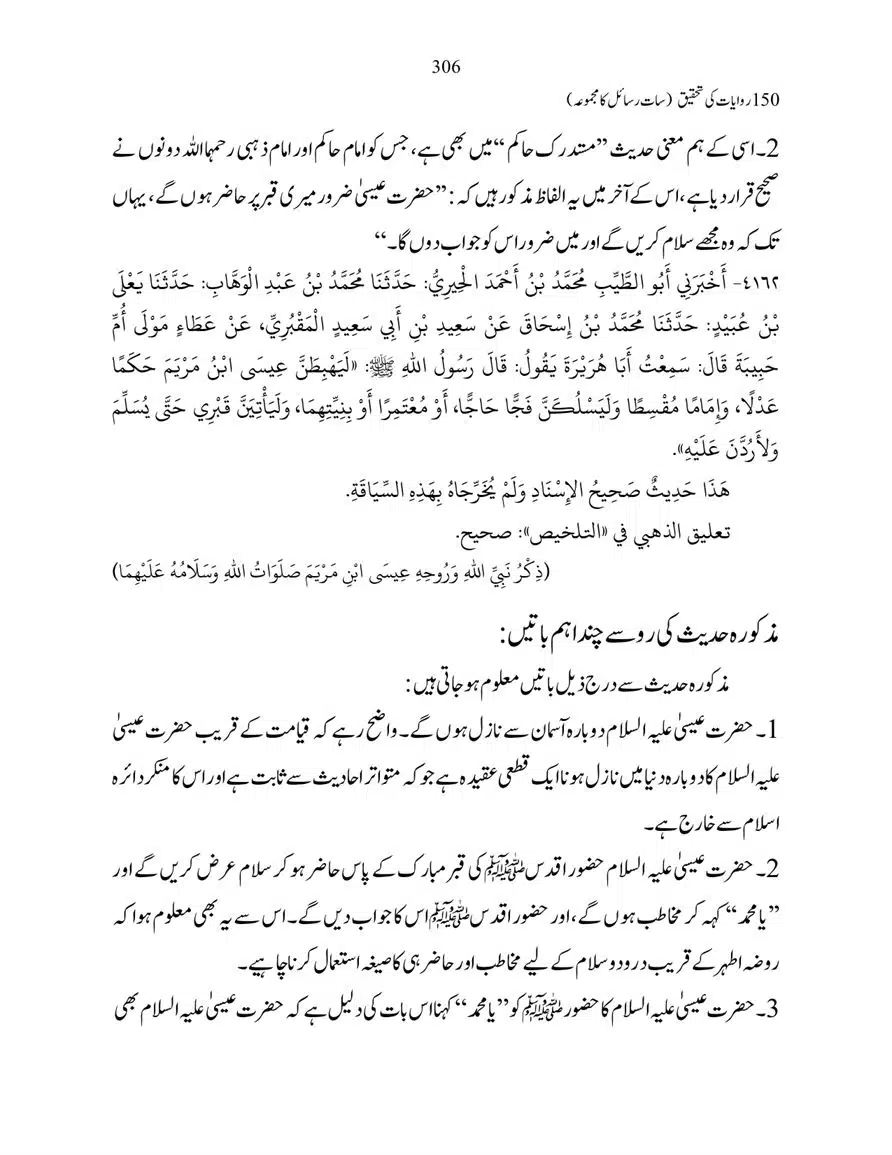 306
150روایات کی تحقیق (سات رسائل کا مجموعہ)
2۔ اسی کے ہم معنی حدیث ”مستدرک حاکم“ میں بھی ہے، جس کو امام حاکم اور امام ذہبی رحمہما اللہ دونوں نے
صحیح قرار دیا ہے، اس کے آخر میں یہ الفاظ مذکور ہیں کہ: ”حضرت عیسیٰ ضرور میری قبر پر حاضر ہوں گے، یہاں
تک کہ وہ مجھے سلام کریں گے اور میں ضرور اس کو جواب دوں گا۔“
٤١٦٢- أَخْبَرَنِي أَبُو الطَّيِّبِ مُحَمَّدُ بْنُ أَحْمَدَ الْحِيرِيُّ: حَدَّثَنَا مُحَمَّدُ بْنُ عَبْدِ الْوَهَّابِ: حَدَّثَنَا يَعْلَى
بْنُ عُبَيْدٍ: حَدَّثَنَا مُحَمَّدُ بْنُ إِسْحَاقَ عَنْ سَعِيدِ بْنِ أَبِي سَعِيدٍ الْمَقْبُرِيِّ، عَنْ عَطَاءٍ مَوْلَى أُمِّ
حَبِيبَةَ قَالَ: سَمِعْتُ أَبَا هُرَيْرَةَ يَقُولُ: قَالَ رَسُولُ اللهِ ﷺ: «لَيَهْبِطَنَّ عِيسَى ابْنُ مَرْيَمَ حَكَمًا
عَدْلًا، وَإِمَامًا مُقْسِطًا وَلَيَسْلُكَنَّ فَجًّا حَاجًّا، أَوْ مُعْتَمِرًا أَوْ بِنِيَّتِهِمَا، وَلَيَأْتِيَنَّ قَبْرِي حَتَّى يُسَلِّمَ
وَلَأَرُدَّنَّ عَلَيْهِ».
هَذَا حَدِيثٌ صَحِيحُ الإِسْنَادِ وَلَمْ يُخَرِّجَاهُ بِهَذِهِ السِّيَاقَةِ.
تعليق الذهبي في «التلخيص»: صحيح.
(ذِكْرُ نَبِيِّ اللهِ وَرُوحِهِ عِيسَى ابْنِ مَرْيَمَ صَلَوَاتُ اللهِ وَسَلَامُهُ عَلَيْهِمَا)
مذکورہ حدیث کی رو سے چند اہم باتیں:
مذکورہ حدیث سے درج ذیل باتیں معلوم ہو جاتی ہیں:
1۔ حضرت عیسیٰ علیہ السلام دوبارہ آسمان سے نازل ہوں گے۔ واضح رہے کہ قیامت کے قریب حضرت عیسیٰ
علیہ السلام کا دوبارہ دنیا میں نازل ہونا ایک قطعی عقیدہ ہے جو کہ متواتر احادیث سے ثابت ہے اور اس کا منکر دائرہ
اسلام سے خارج ہے۔
2۔ حضرت عیسیٰ علیہ السلام حضور اقدس ﷺ کی قبر مبارک کے پاس حاضر ہو کر سلام عرض کریں گے اور
”یا محمد“ کہہ کر مخاطب ہوں گے، اور حضور اقدس ﷺ اس کا جواب دیں گے۔ اس سے یہ بھی معلوم ہوا کہ
روضہ اطہر کے قریب درود و سلام کے لیے مخاطب اور حاضر ہی کا صیغہ استعمال کرنا چاہیے۔
3۔ حضرت عیسیٰ علیہ السلام کا حضور ﷺ کو ”یا محمد“ کہنا اس بات کی دلیل ہے کہ حضرت عیسیٰ علیہ السلام بھی